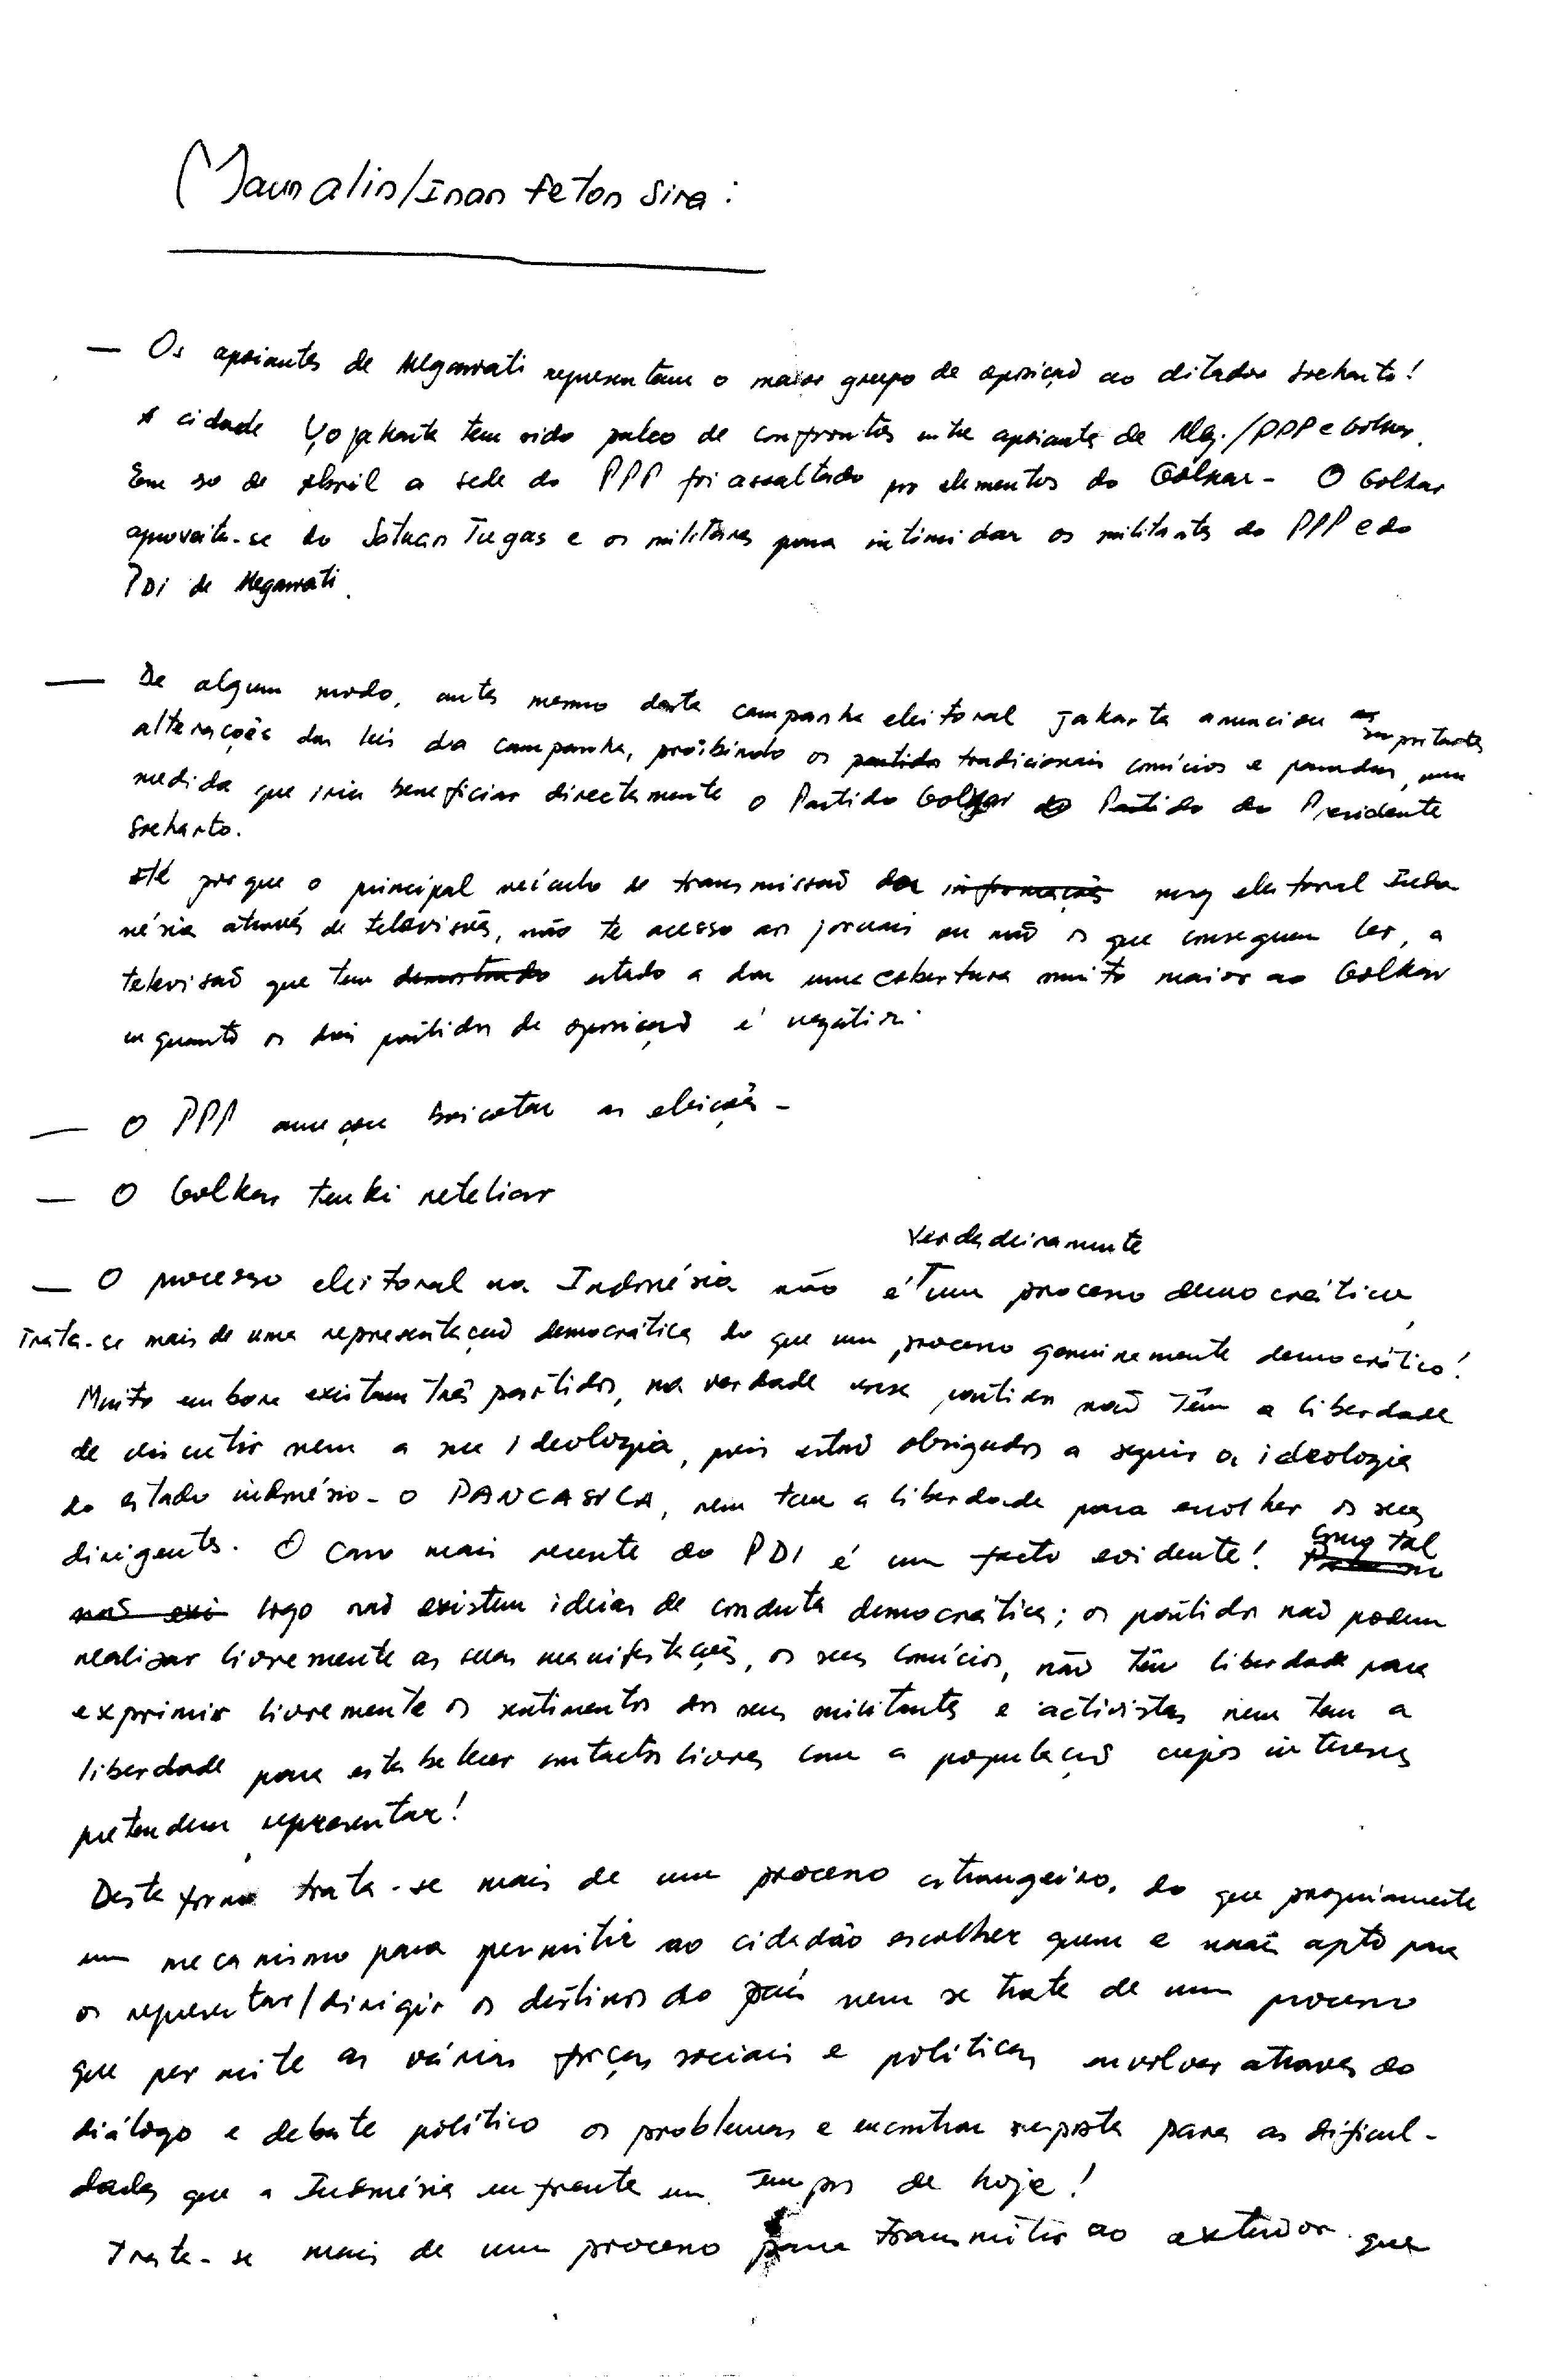 Maun alin/Inan feton sira:
— Os apoiantes de Megawati representam o maior grupo de oposição ao ditador Soeharto!
A cidade Yojakarta tem sido palco de confrontos entre apoiantes de Meg./PPP e Golkar.
Em 30 de Abril a sede do PPP foi assaltado por elementos do Golkar - O Golkar
aproveita-se do Satuan Tugas e os militares para intimidar os militantes do PPP e do
PDI de Megawati.
— De algum modo, antes mesmo desta campanha eleitoral Jakarta anunciou as importantes
alterações das leis da campanha, proibindo os partidos tradicionais comícios e paradas, uma
medida que iria beneficiar directamente o Partido Golkar do Partido do Presidente
Soeharto.
Até porque o principal veículo de transmissão da informações eleitoral Indo
nésia através de televisões, não te acesso aos jornais ou não os que conseguem ler, a
televisão que tem demonstrado estado a dar uma cobertura muito maior ao Golkar
enquanto os dois partidos de oposição é negativo.
— O PPP ameaçou boicotar as eleições -
— O Golkar retaliar
verdadeiramente
— O processo eleitoral na Indonésia não é um processo democrático,
Trata-se mais de uma representação democrática do que um processo genuinamente democrático!
Muito embora existam três partidos, na verdade esses partidos não têm a liberdade
de discutir nem a sua ideologia, pois estão obrigados a seguir a ideologia
do estado indonésio - o PANCASILA, nem tem a liberdade para escolher os seus
dirigentes. O caso mais recente do PDI é um facto evidente! Como tal
não exi logo não existem ideias de conduta democrática; os partidos não podem
realizar livremente as suas manifestações, os seus comícios, não têm liberdade para
exprimir livremente os sentimentos dos seus militantes e activistas nem tem a
liberdade para estabelecer contactos livres com a população cujos interesses
pretendem representar!
Desta forma trata-se mais de um processo estrangeiro, do que propriamente
um mecanismo para permitir ao cidadão escolher quem e mais apto para
os representar/dirigir os destinos do país nem se trate de um processo
que permite as várias forças sociais e políticas envolver através do
diálogo e debate político os problemas e encontrar resposta para as dificul-
dades que a Indonésia enfrenta em tempos de hoje!
Trata-se mais de um processo para transmitir ao exterior que